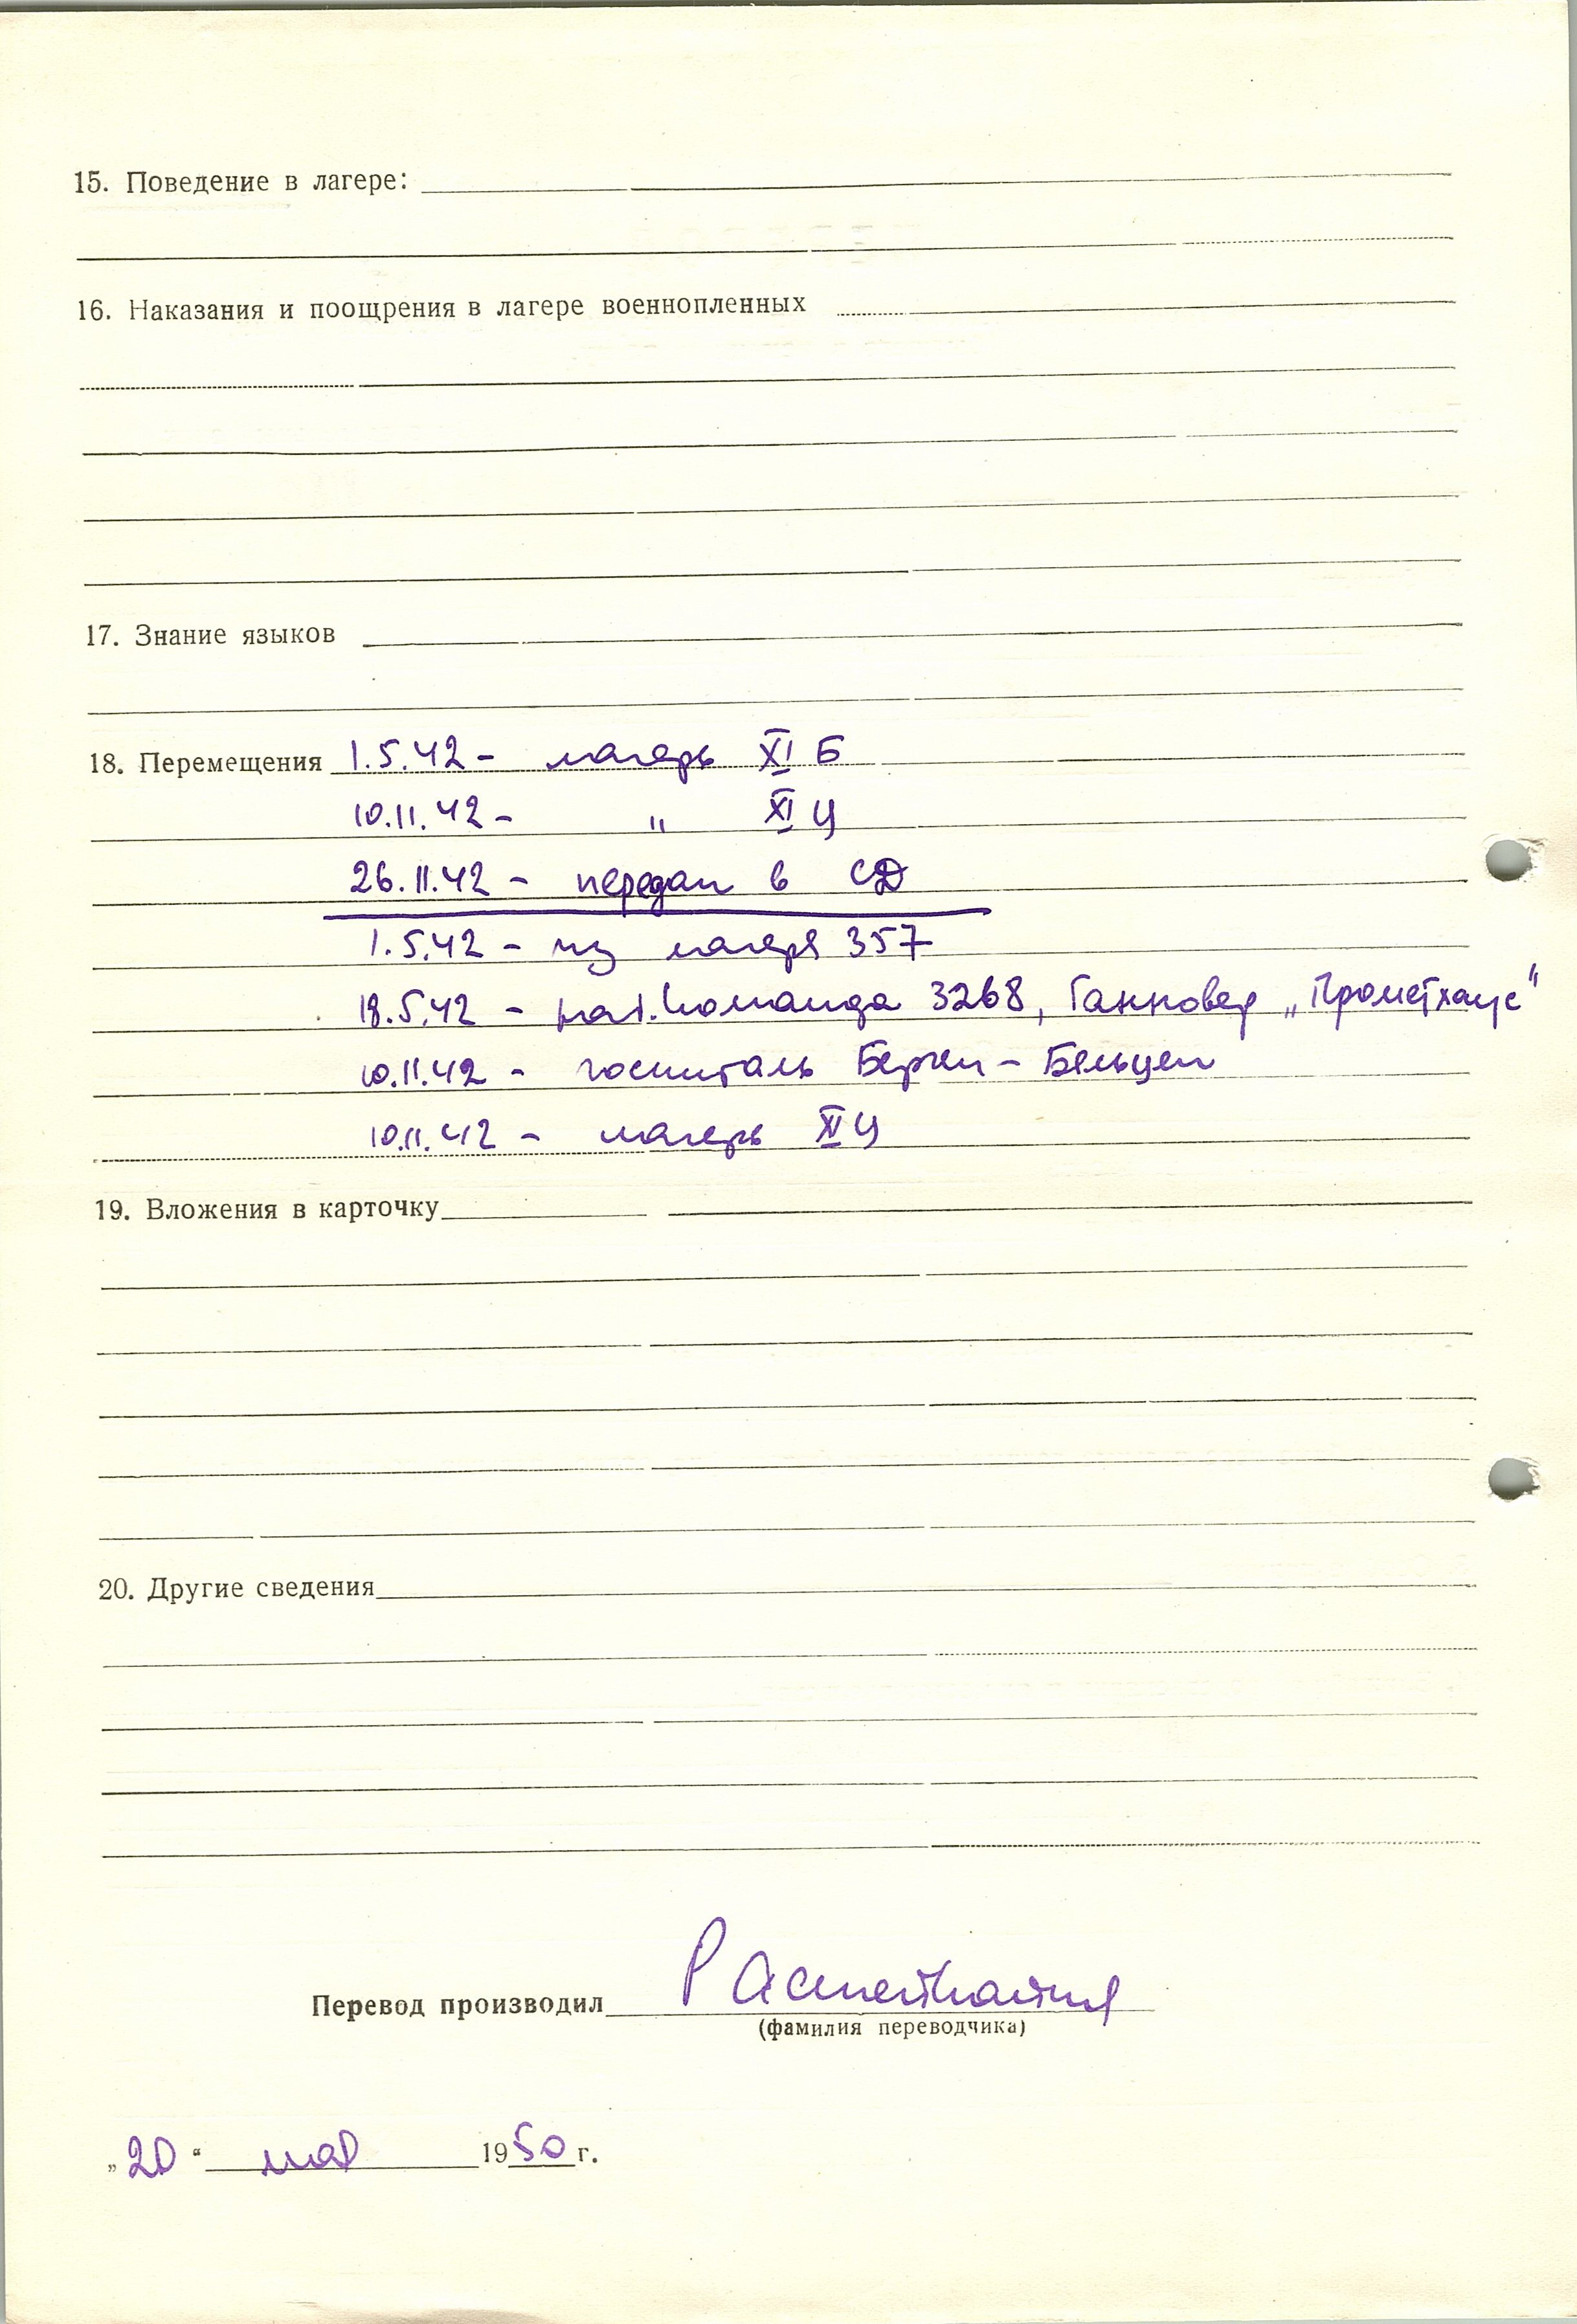 15. Поведение в лагере:
16. Наказания и поощрения в лагере военнопленных
17. Знание языков
18. Перемещения 1.5.42 – лагерь XI Б
10.11.42 – " XI Ц
26.11.42 – передан в СД
1.5.42 – из лагеря 357
18.5.42 – раб. команда 3268, Ганновер „Прометхаус"
10.11.42 – госпиталь Берген – Бельцен
10.11.42 – лагерь XI Ц
19. Вложения в карточку
20. Другие сведения
Перевод производил
(фамилия переводчика)
„20" мая 1950 г.